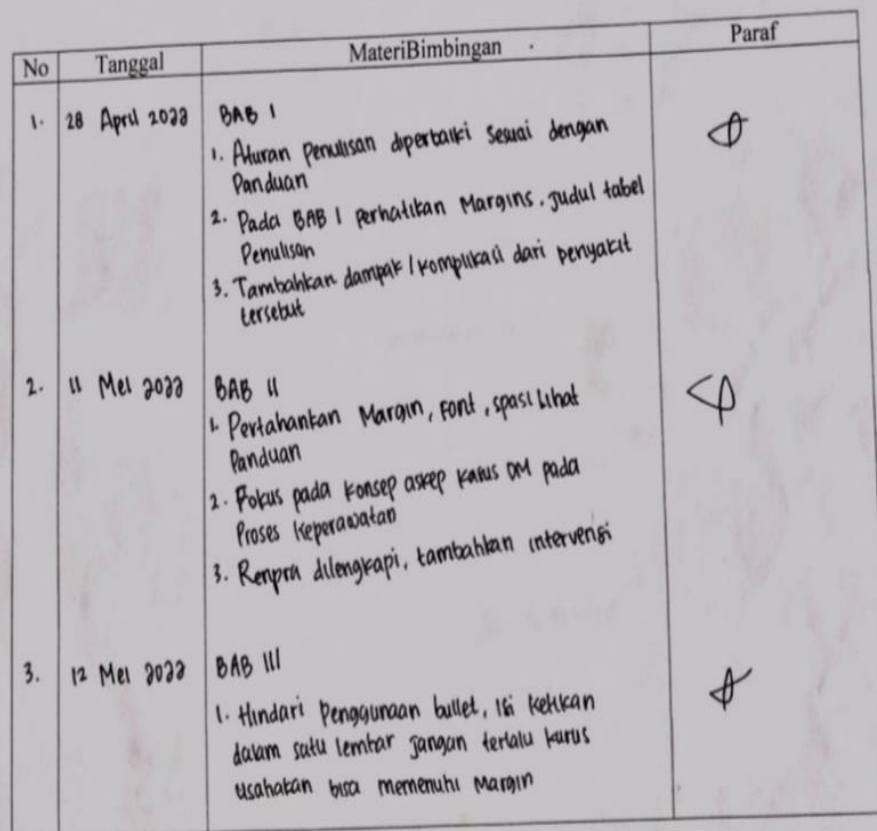 No Tanggal MateriBimbingan Paraf
1. 28 April 2022 BAB 1
1. Aturan Penulisan diperbaiki Sesuai dengan
Panduan
2. Pada BAB 1 perhatikan Margins, Judul tabel
Penulisan
3. Tambahkan dampak / komplikasi dari penyakit
tersebut
2. 11 Mei 2022 BAB II
1. Pertahankan Margin, Font, spasi Lihat
Panduan
2. Fokus pada konsep askep kasus DM pada
Proses keperawatan
3. Renpra dilengkapi, tambahkan intervensi
3. 12 Mei 2022 BAB III
1. Hindari Penggunaan bullet, isi ketikan
dalam satu lembar Jangan terlalu kurus
usahakan bisa memenuhi Margin